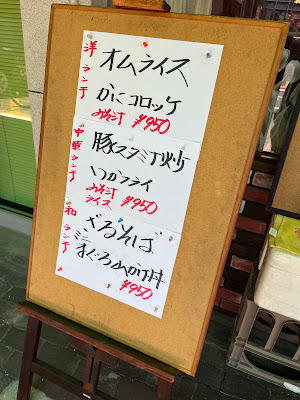 洋ランチ
オムライス
かにコロッケ
みそ汁 ¥950
中華ランチ
豚スタミナ炒
いかフライ
みそ汁
ライス ¥950
和ランチ
ざるそば
ミニ
まぐろ山かけ丼
¥950